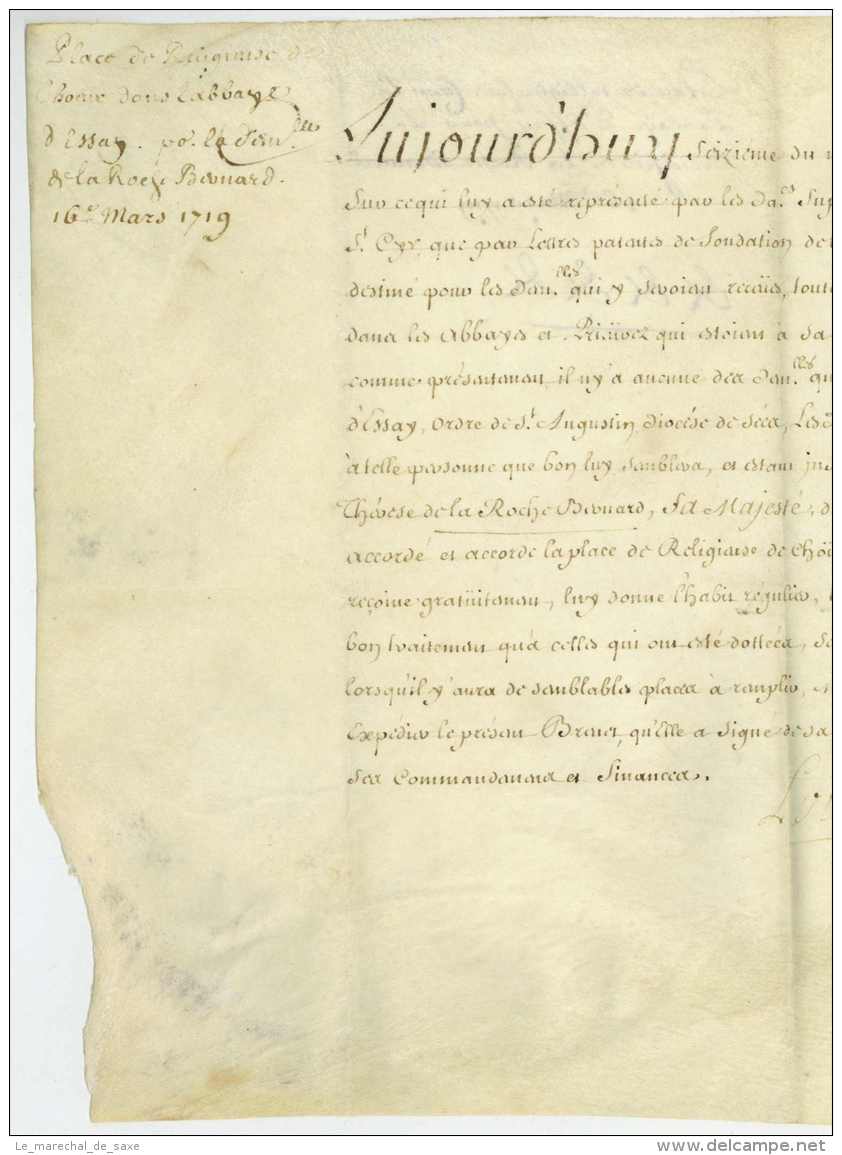 Place de Religieuse de
Choeur dans l'abbaye
d'Essay. po.r la Dem.lle
de la Roche Bernard.
16.e Mars 1719
Aujourd'huy Seizieme du
Sur ce qui luy a esté representé par les Da.es Sup
S.t Cyr, que par Lettres patentes de fondation de
destiné pour les Dam.lles qui y seroient receües, toute
dans les Abbayes et Prieurez qui estoient à Sa
comme présentement il n'y a aucune des Dam.lles qu
d'Essay, Ordre de S.t Augustin, Diocése de Sées, Les
à telle personne que bon luy semblera, et estant
Thérese de la Roche Bernard, Sa Majesté, d
accordé et accorde la place de Religieuse de Chö
reçoive gratüitement, luy donne l'habit régulier,
bon traitement qu'à celles qui ont esté dottées, Sa
lorsqu'il y aura de semblables places à remplir,
Expédier le présent Brevet, qu'Elle a Signé de sa
Ses Commandemens et Finances.
Le_marechal_de_saxe
delcampe.net